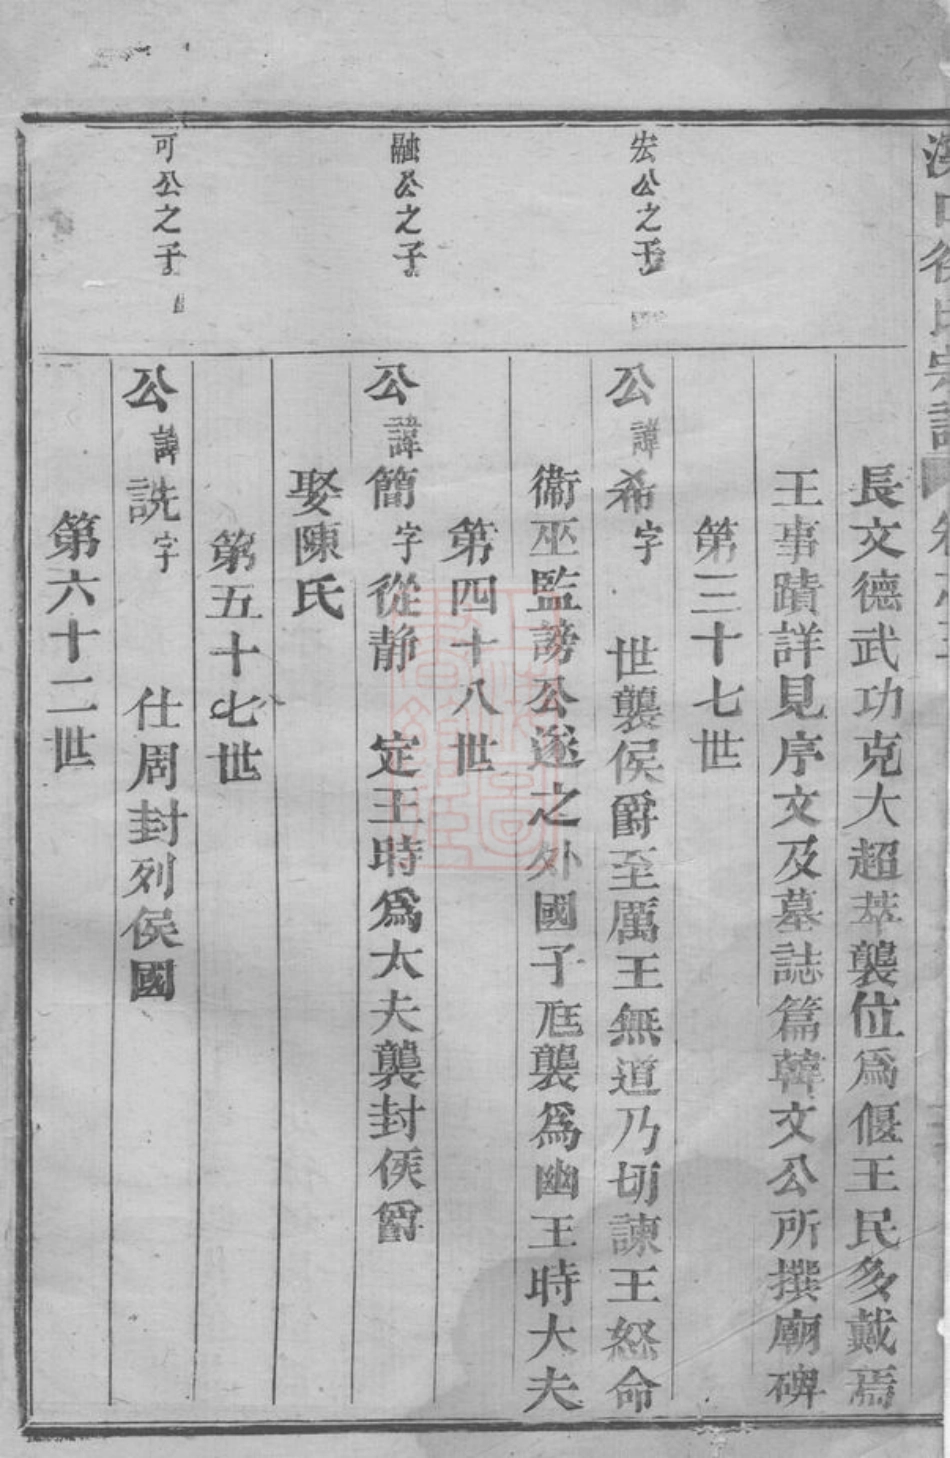 長文德武功克大超萃襲位爲偃王民多戴焉
王事蹟詳見序文及墓誌篇韓文公所撰廟碑
第三十七世
宏公之子
公諱希字 世襲侯爵至厲王無道乃切諫王怒命
衞巫監謗公遂之外國子尫襲爲幽王時大夫
第四十八世
融公之子
公諱簡字從静 定王時爲大夫襲封侯爵
娶陳氏
第五十七世
可公之子
公諱詵字 仕周封列侯國
第六十二世